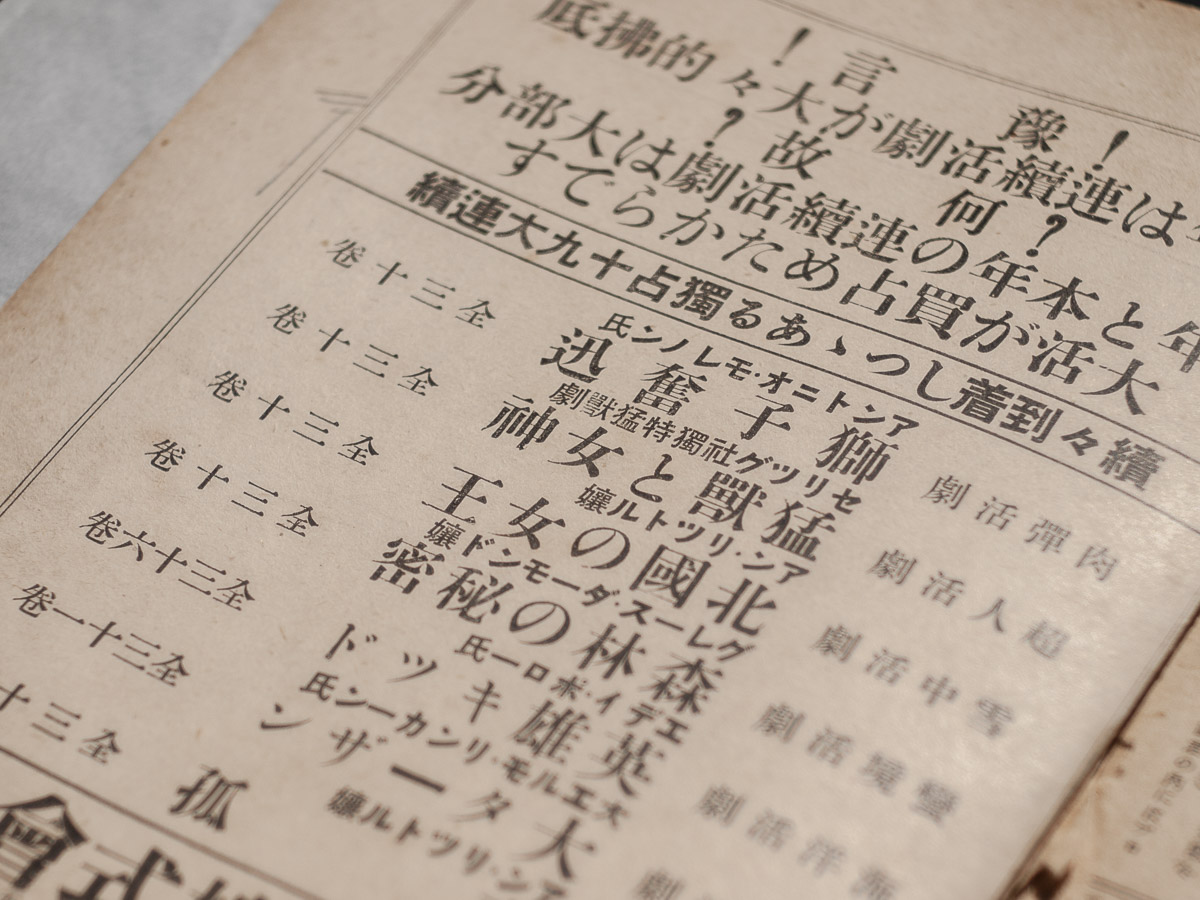 ！豫言！
は連續活劇が大々的拂底
？何故？
年と本年の連續活劇は大部分
大活が買占めたからです
續々到着しつゝある獨占十九大連續
アントニオ・モレノン氏
肉彈活劇 獅子奮迅 全三十卷
セリツグ社獨特猛獸劇
超人活劇 猛獸と女神 全三十卷
アン・リツトル孃
雪中活劇 北國の女王 全三十卷
グレース・ダーモンド孃
活劇 森林の秘密 全三十卷
エデイ・ポロー氏
海洋活劇 英雄キツド 全三十六卷
大エルモ・リンカーン氏
劇 大ターザン 全三十一卷
アン・リツトル孃
孤 全三十
式會